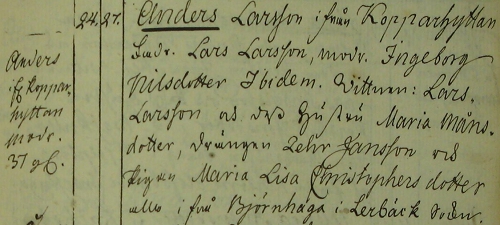 24. 27. Anders Larsson ifrån Kopparhyttan
Fadr. Lars Larsson, modr. Ingeborg
Nilsdotter Ibidem. Vittnen: Lars
Larsson och dess Hustru Maria Måns-
dotter, Drängen Pehr Jansson och
Pigan Maria Lisa Christophersdotter
alla ifrå Björnhaga i Lerbäck Sockn.
Anders
if. Koppar-
hyttan
modr.
37